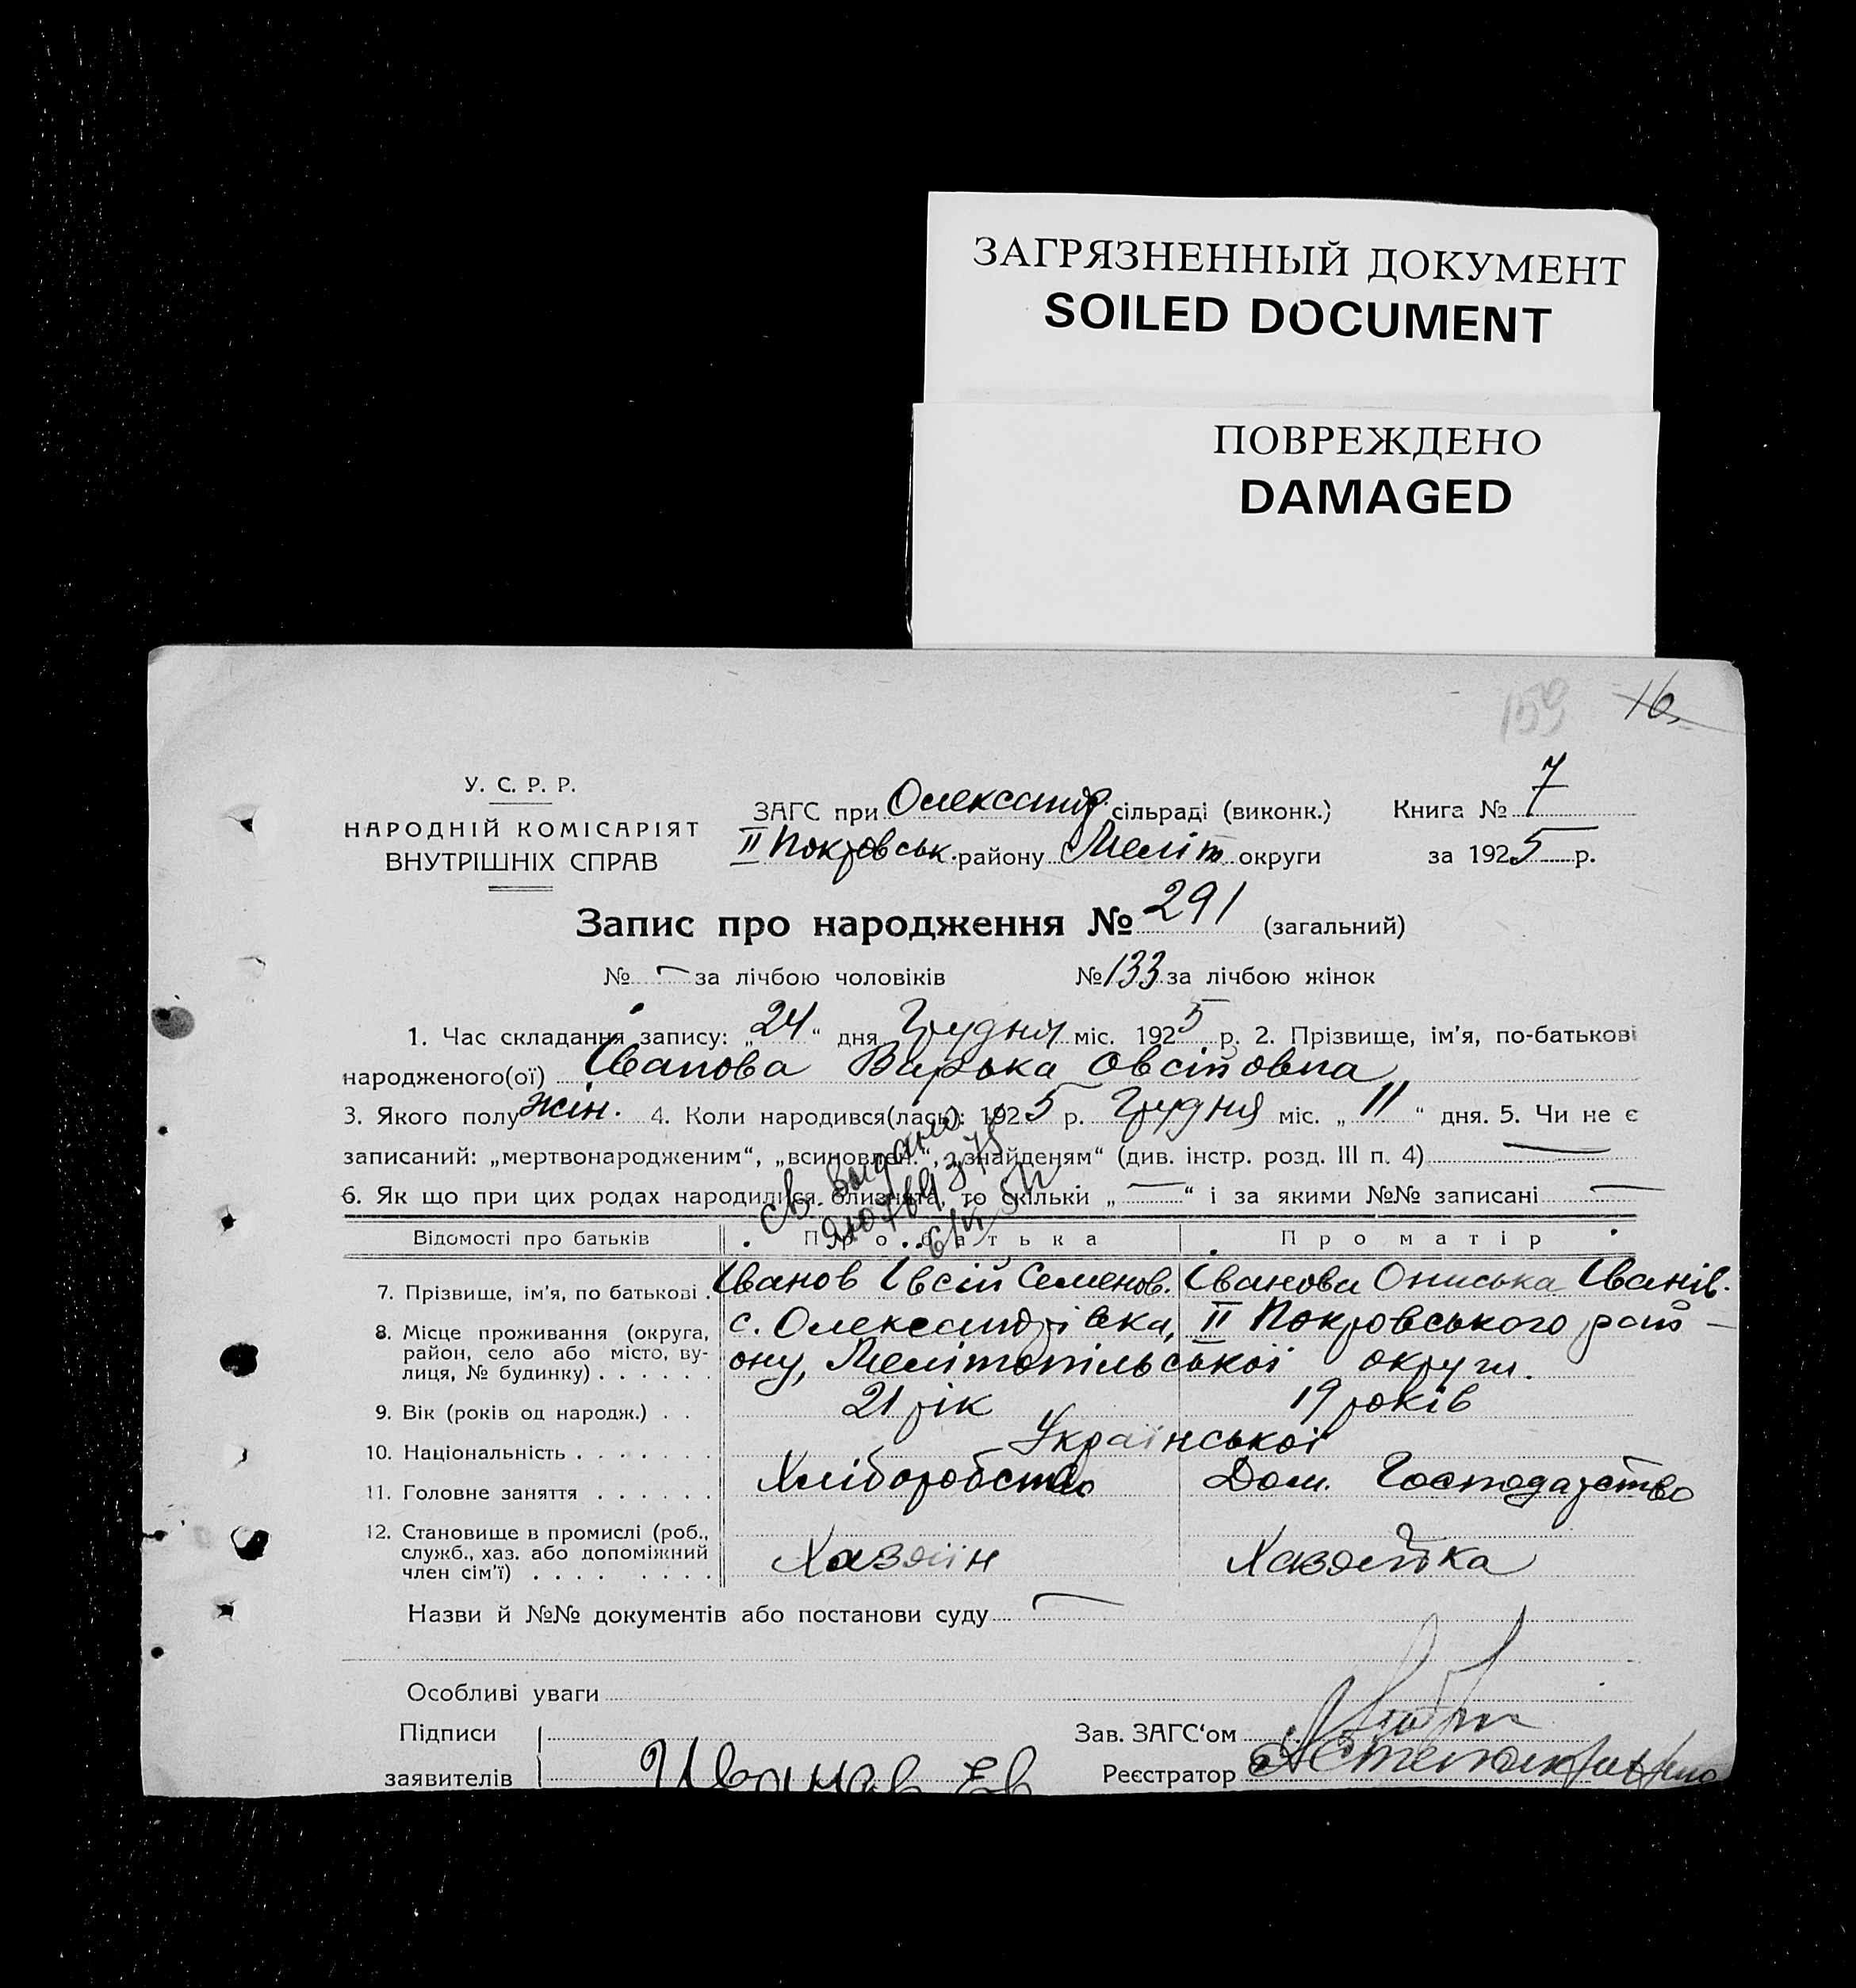 ЗАГРЯЗНЕННЫЙ ДОКУМЕНТ
SOILED DOCUMENT
ПОВРЕЖДЕНО
DAMAGED
159 16.
У. С. Р. Р.
НАРОДНІЙ КОМІСАРІЯТ
ВНУТРІШНІХ СПРАВ
ЗАГС при Олександр. сільраді (виконк.) Книга № 7
II Покровськ. району Меліт округи за 1925 р.
Запис про народження № 291 (загальний)
№ — за лічбою чоловіків № 133 за лічбою жінок
1. Час складання запису: „24“ дня Грудня міс. 1925 р. 2. Прізвище, ім'я, по-батькові
народженого(ої) Іванова Варька Овсіївна
3. Якого полу жін. 4. Коли народився(лась): 1925 р. Грудня міс. „11“ дня. 5. Чи не є
записаний: „мертвонародженим“, „всиновлен.“, „знайденям“ (див. інстр. розд. III п. 4) —
6. Як що при цих родах народилися близнята, то скільки „—“ і за якими №№ записані —
Св. выдано
Відомості про батьків Про батька Про матір
7. Прізвище, ім'я, по батькові . Іванов Івсій Семенов. Іванова Ониська Іванів.
8. Місце проживання (округа, район, село або місто, вулиця, № будинку) . . . . . . с. Олександрівка, II Покровського рай-
ону, Мелітопільської округи.
9. Вік (років од народж.) . . 21 рік 19 років
10. Національність . . . . . . . Української
11. Головне заняття . . . . . . Хліборобство Дом. Господарство
12. Становище в промислі (роб., служб., хаз. або допоміжний член сім'ї) . . . . . . . . Хазяїн Хазяйка
Назви й №№ документів або постанови суду —
Особливі уваги
Підписи
заявителів Иванов Ев
Зав. ЗАГС'ом
Реєстратор